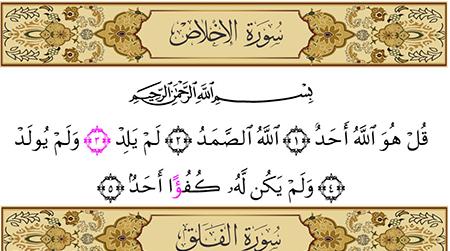 سُورَةُ الإِخْلَاصِ
بِسْمِ ٱللَّهِ ٱلرَّحْمَٰنِ ٱلرَّحِيمِ
قُلْ هُوَ ٱللَّهُ أَحَدٌ ﴿١﴾ ٱللَّهُ ٱلصَّمَدُ ﴿٢﴾ لَمْ يَلِدْ ﴿٣﴾ وَلَمْ يُولَدْ
﴿٤﴾ وَلَمْ يَكُن لَّهُۥ كُفُؤًا أَحَدٌۢ ﴿٥﴾
سُورَةُ الفَلَقِ